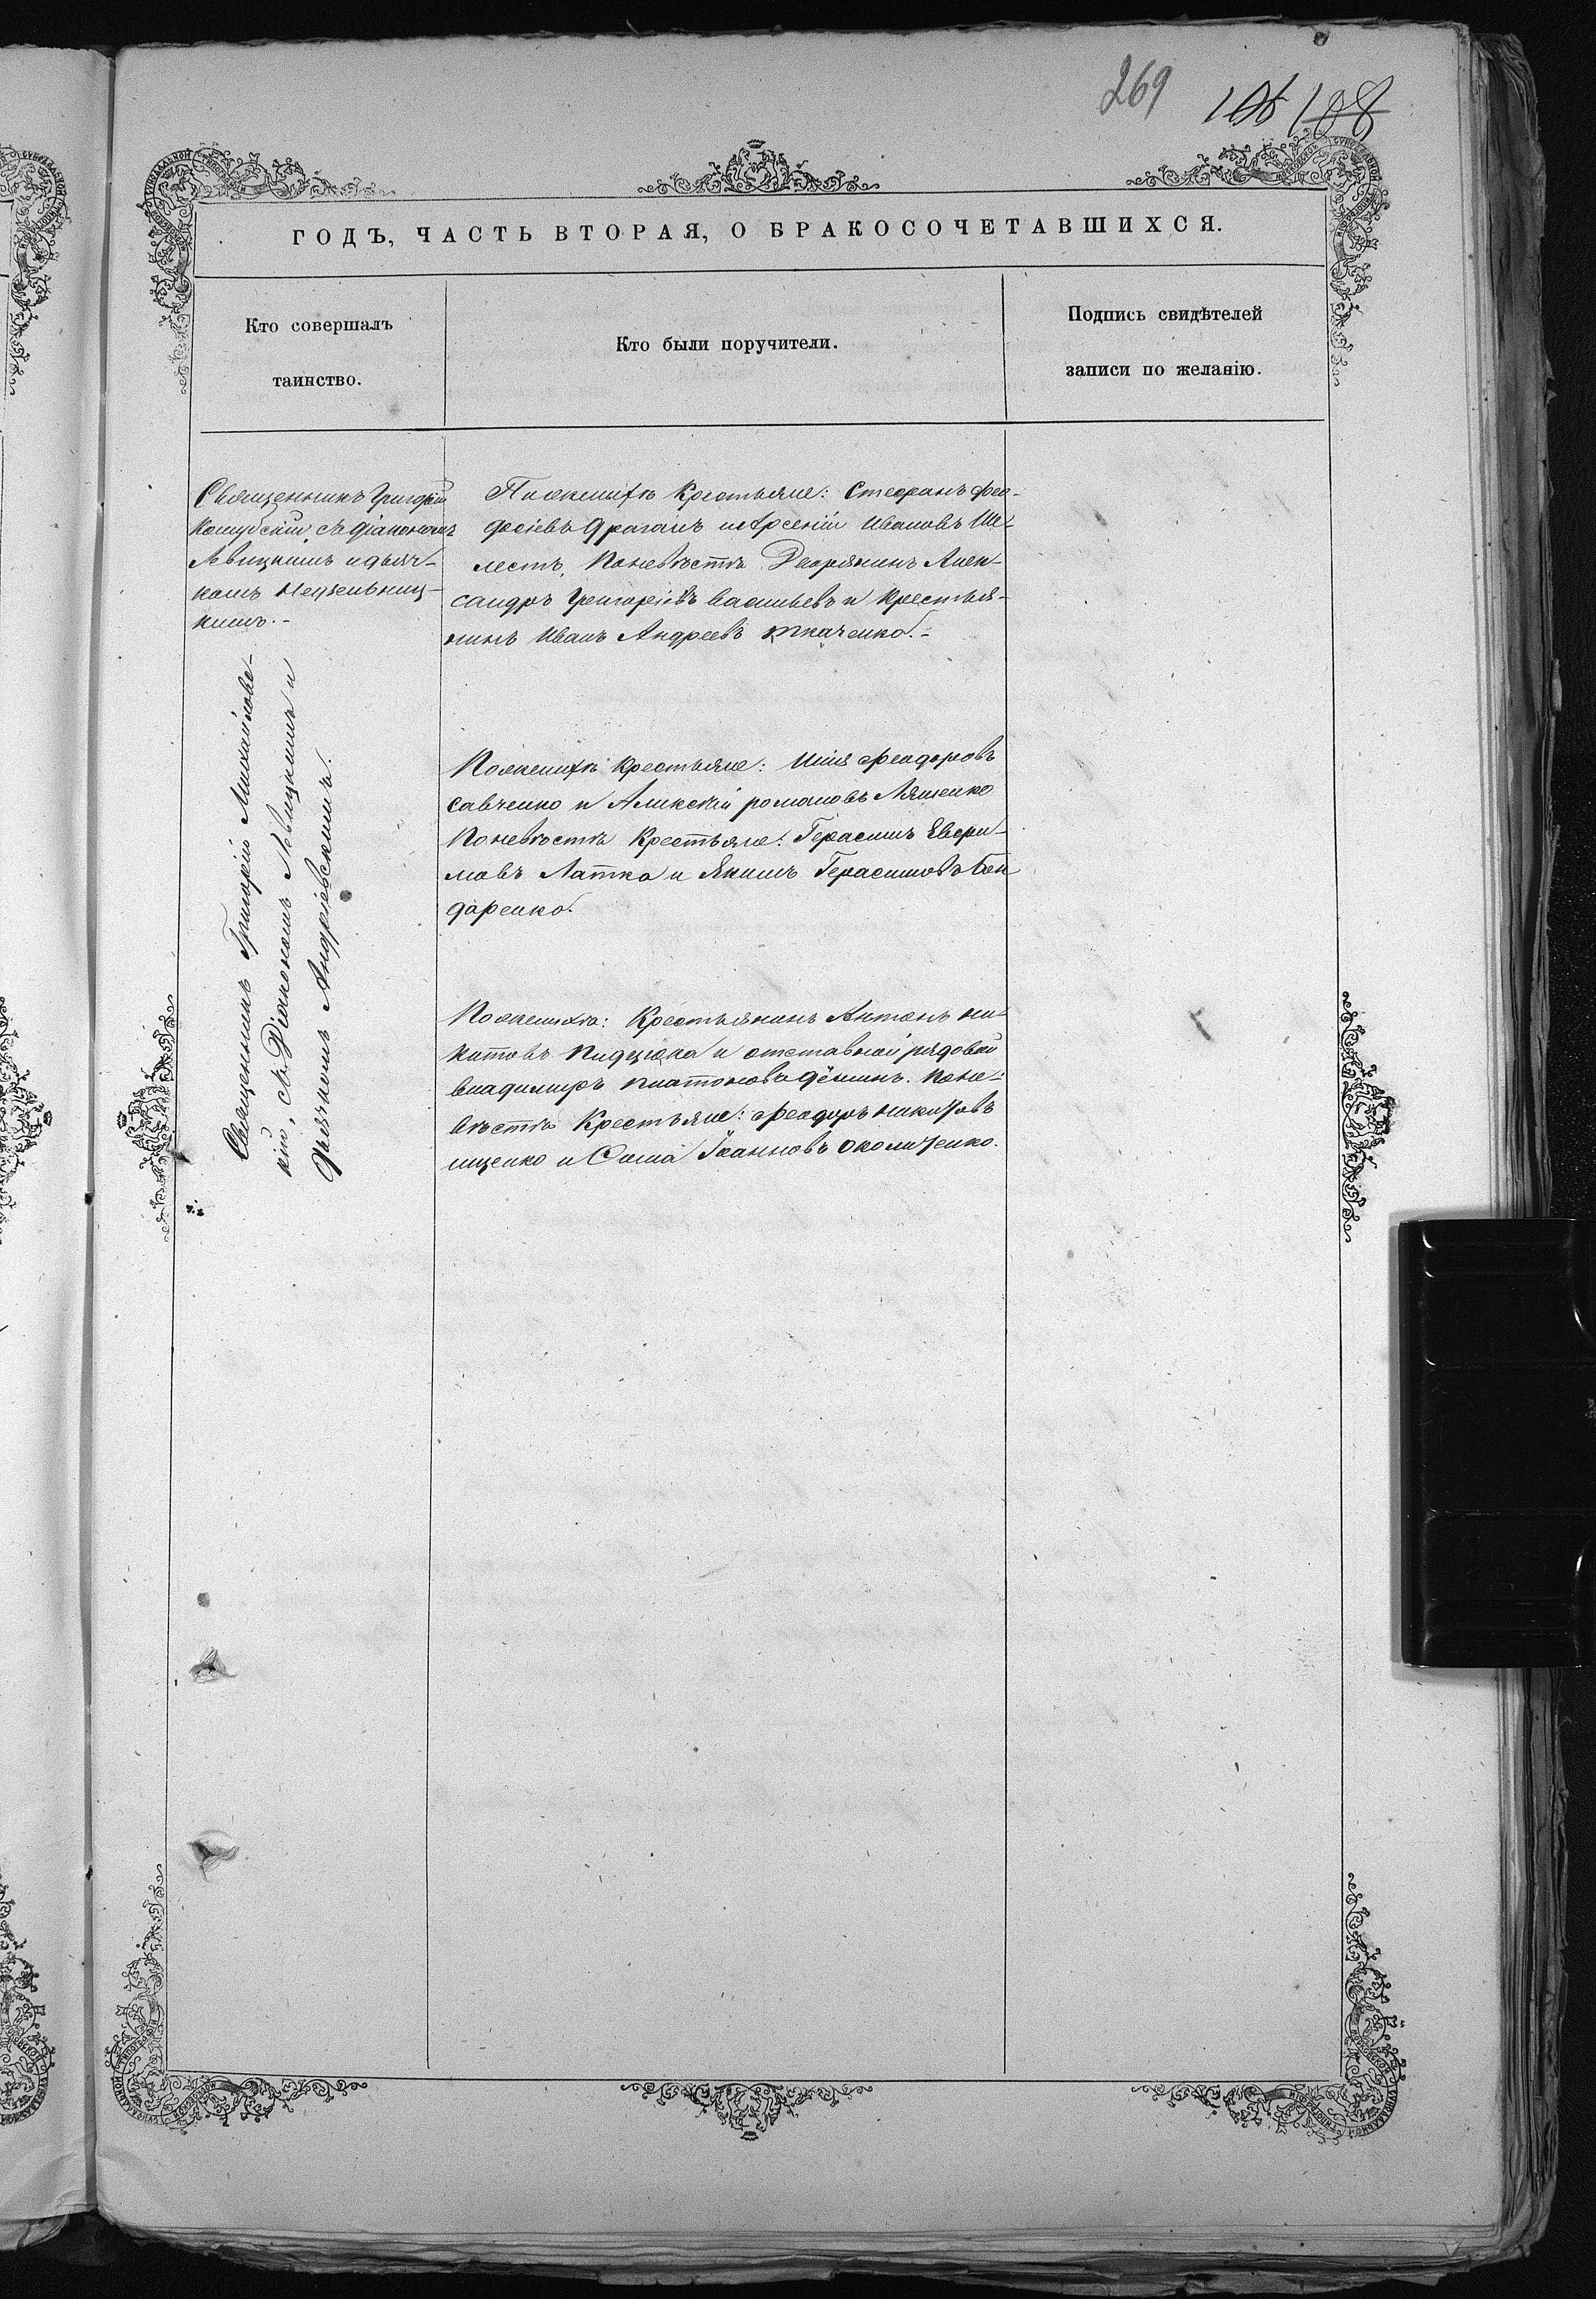 269 106 108
ГОДЪ, ЧАСТЬ ВТОРАЯ, О БРАКОСОЧЕТАВШИХСЯ.
Кто совершалъ
таинство.
Кто были поручители.
Подпись свидѣтелей
записи по желанію.
Священникъ Григорій
съ Діакономъ
Левицкимъ и дьяч-
комъ
кимъ.-
По женихѣ Крестьяне: Стефанъ Фео-
досіевъ Драганъ и Арсеній Ивановъ Ше-
лестъ, По невѣстѣ Дворянинъ Алек-
сандръ Григоріевъ Васильевъ и Крестья-
нинъ Иванъ Андреевъ Ткаченко.-
Священникъ Григорій Михайловс-
кій, съ Діакономъ Левицкимъ и
Дьячкомъ Андріевскимъ.
По женихѣ Крестьяне: Илія Феодоровъ
Савченко и Алексѣй романовъ Ляшенко
По невѣстѣ Крестьяне: Герасимъ
Латка и Якимъ Герасимовъ Бон
даренко.
По женихѣ: Крестьянинъ Антонъ Ни-
китовъ и отставной рядовой
Владимиръ Платоновъ Дёминъ. По не-
вѣстѣ Крестьяне: Феодоръ Никитовъ
ищенко и Савва Іоанновъ